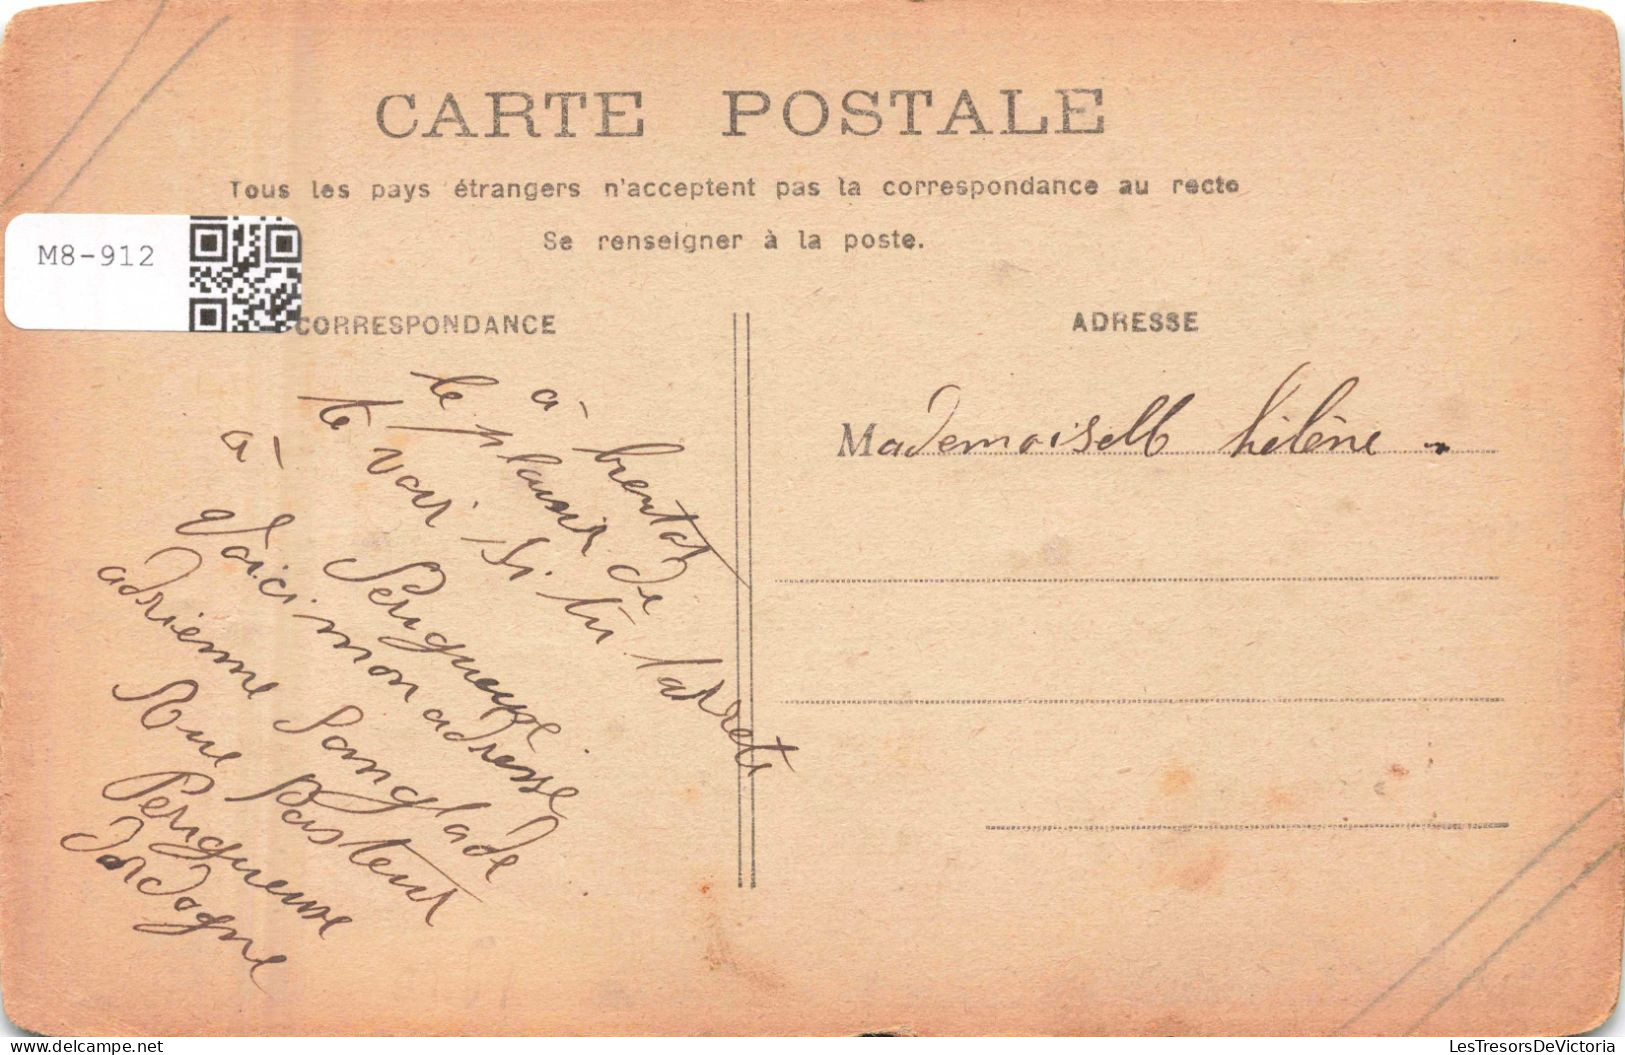 CARTE POSTALE
Tous les pays étrangers n'acceptent pas la correspondance au recto
Se renseigner à la poste.
M8-912
CORRESPONDANCE
à bientot
le plaisir de
te voir si tu t'arrete
à Perigueuse
Voici mon adresse
adrienne Sanglade
Rue Pasteur
Perigueuse
Dordogne
ADRESSE
Mademoiselle hélène
LesTresorsDeVictoria
www.delcampe.net